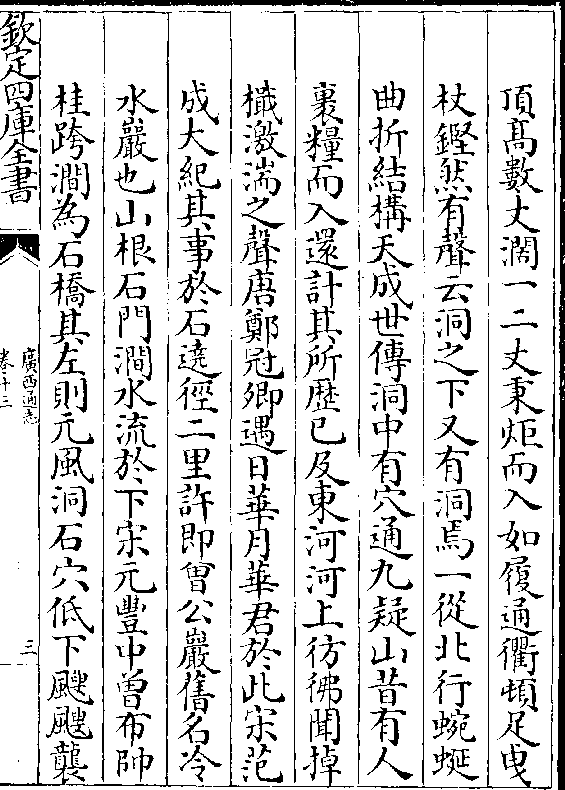 頂髙數丈濶一二丈秉炬而入如履通衢頓足曳
杖鏗然有聲云洞之下又有洞焉一從北行蜿蜒
曲折結構天成世傳洞中有穴通九疑山昔有人
裹糧而入還計其所歴已及東河河上彷彿聞掉
檥激湍之聲唐鄭冠卿遇日華月華君於此宋范
成大紀其事於石遶徑二里許即曾公巖舊名冷
水巖也山根石門澗水流於下宋元豐中曾布帥
桂跨澗為石橋其左則元風洞石穴低下颼颼襲
欽定四庫全書
廣西通志
卷十三
三